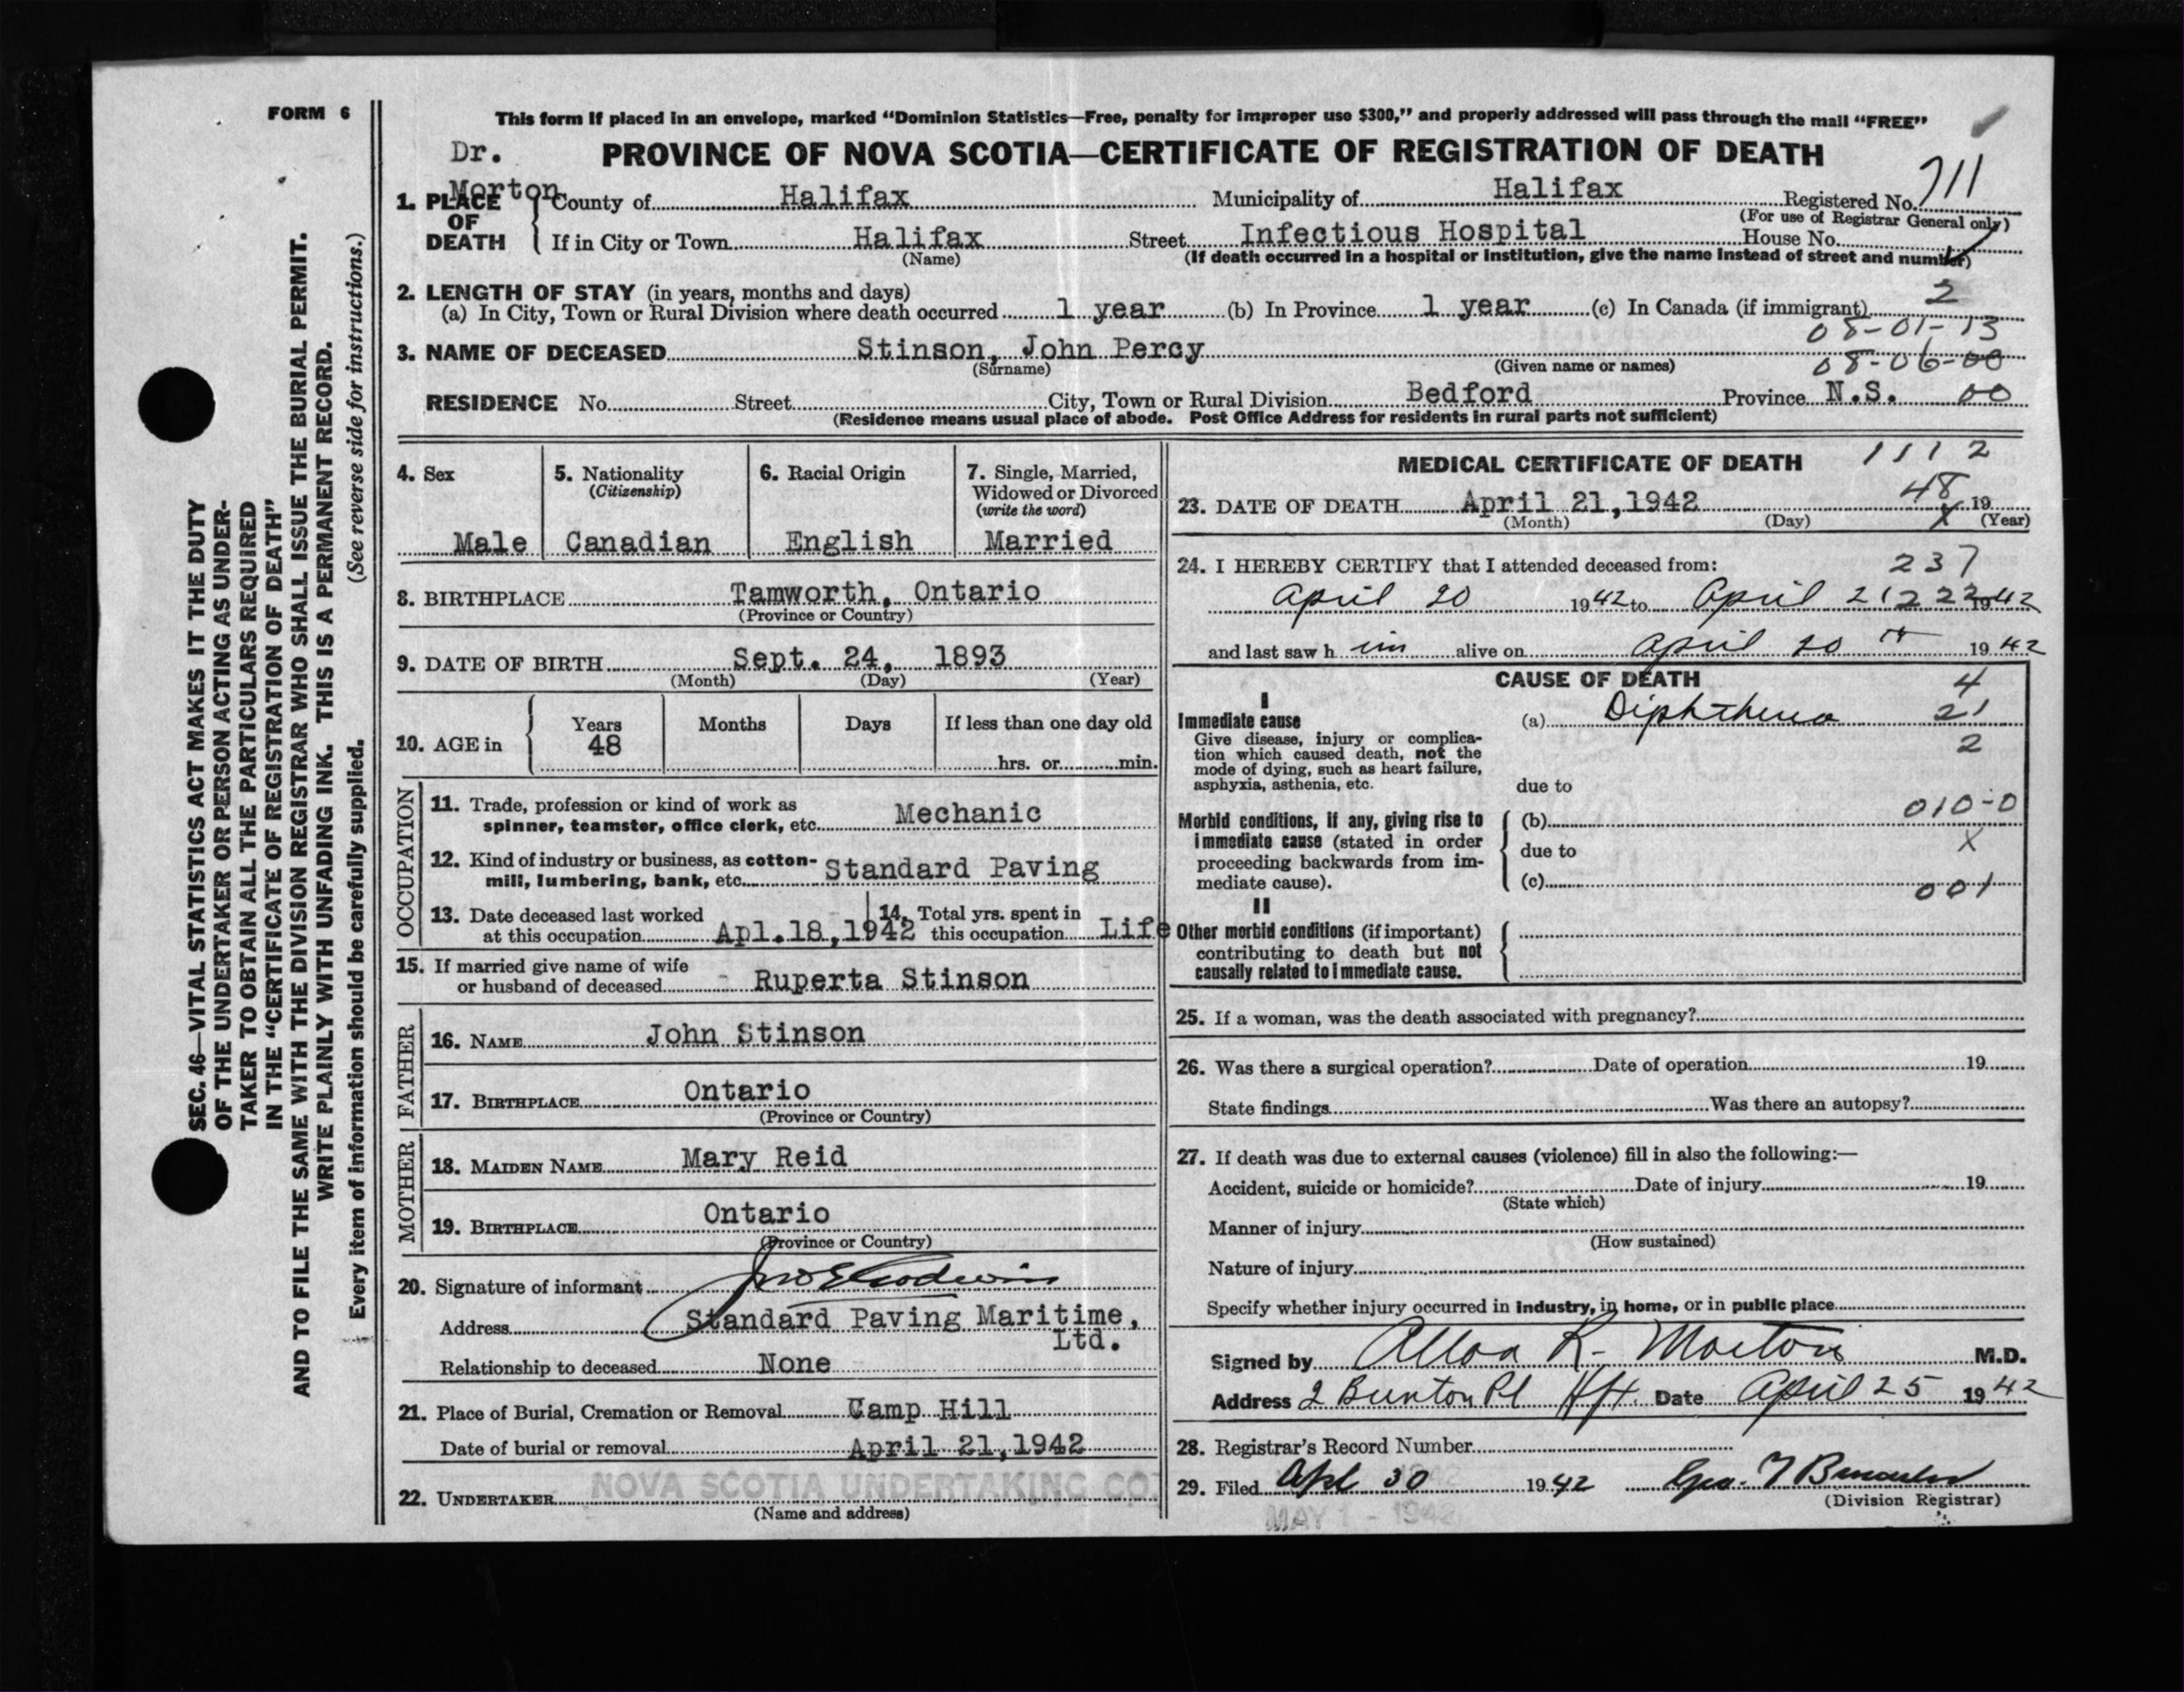 FORM 6
This form if placed in an envelope, marked "Dominion Statistics—Free, penalty for improper use $300," and properly addressed will pass through the mail "FREE"
Dr. Morton
PROVINCE OF NOVA SCOTIA—CERTIFICATE OF REGISTRATION OF DEATH
1. PLACE OF DEATH
County of Halifax Municipality of Halifax Registered No. 711
(For use of Registrar General only)
If in City or Town Halifax Street Infectious Hospital House No.
(Name) (If death occurred in a hospital or institution, give the name instead of street and number)
2. LENGTH OF STAY (in years, months and days)
(a) In City, Town or Rural Division where death occurred 1 year (b) In Province 1 year (c) In Canada (if immigrant) 2
08-01-13
3. NAME OF DECEASED Stinson, John Percy
(Surname) (Given name or names) 08-06-00
RESIDENCE No. Street City, Town or Rural Division Bedford Province N.S. 00
(Residence means usual place of abode. Post Office Address for residents in rural parts not sufficient)
4. Sex
Male
5. Nationality
(Citizenship)
Canadian
6. Racial Origin
English
7. Single, Married,
Widowed or Divorced
(write the word)
Married
8. BIRTHPLACE Tamworth, Ontario
(Province or Country)
9. DATE OF BIRTH Sept. 24, 1893
(Month) (Day) (Year)
10. AGE in Years Months Days If less than one day old
48 hrs. or min.
OCCUPATION
11. Trade, profession or kind of work as
spinner, teamster, office clerk, etc. Mechanic
12. Kind of industry or business, as cotton-
mill, lumbering, bank, etc. Standard Paving
13. Date deceased last worked
at this occupation Apl.18,1942
14. Total yrs. spent in
this occupation Life
15. If married give name of wife
or husband of deceased Ruperta Stinson
FATHER
16. NAME John Stinson
17. BIRTHPLACE Ontario
(Province or Country)
MOTHER
18. MAIDEN NAME Mary Reid
19. BIRTHPLACE Ontario
(Province or Country)
20. Signature of informant Jno E Godwin
Address Standard Paving Maritime,
Ltd.
Relationship to deceased None
21. Place of Burial, Cremation or Removal Camp Hill
Date of burial or removal April 21,1942
22. UNDERTAKER NOVA SCOTIA UNDERTAKING CO.
(Name and address)
MEDICAL CERTIFICATE OF DEATH 1112
48
23. DATE OF DEATH April 21,1942 19
(Month) (Day) (Year)
24. I HEREBY CERTIFY that I attended deceased from: 237
April 20 1942 to April 21 222 1942
and last saw h im alive on April 20 th 1942
CAUSE OF DEATH 4
I
Immediate cause
Give disease, injury or complica-
tion which caused death, not the
mode of dying, such as heart failure,
asphyxia, asthenia, etc.
(a) Diphtheria 21
2
due to
Morbid conditions, if any, giving rise to
immediate cause (stated in order
proceeding backwards from im-
mediate cause).
010-0
(b)
due to X
(c) 001
II
Other morbid conditions (if important)
contributing to death but not
causally related to immediate cause.
25. If a woman, was the death associated with pregnancy?
26. Was there a surgical operation? Date of operation 19
State findings Was there an autopsy?
27. If death was due to external causes (violence) fill in also the following:—
Accident, suicide or homicide? Date of injury 19
(State which)
Manner of injury
(How sustained)
Nature of injury
Specify whether injury occurred in industry, in home, or in public place
Signed by Allan R. Morton M.D.
Address 2 Burton Pl Hfx. Date April 25 1942
28. Registrar's Record Number
29. Filed Apl 30 1942 Geo.
(Division Registrar)
MAY 1 - 1942
SEC. 46—VITAL STATISTICS ACT MAKES IT THE DUTY
OF THE UNDERTAKER OR PERSON ACTING AS UNDER-
TAKER TO OBTAIN ALL THE PARTICULARS REQUIRED
IN THE "CERTIFICATE OF REGISTRATION OF DEATH"
AND TO FILE THE SAME WITH THE DIVISION REGISTRAR WHO SHALL ISSUE THE BURIAL PERMIT.
WRITE PLAINLY WITH UNFADING INK. THIS IS A PERMANENT RECORD.
Every item of information should be carefully supplied. (See reverse side for instructions.)